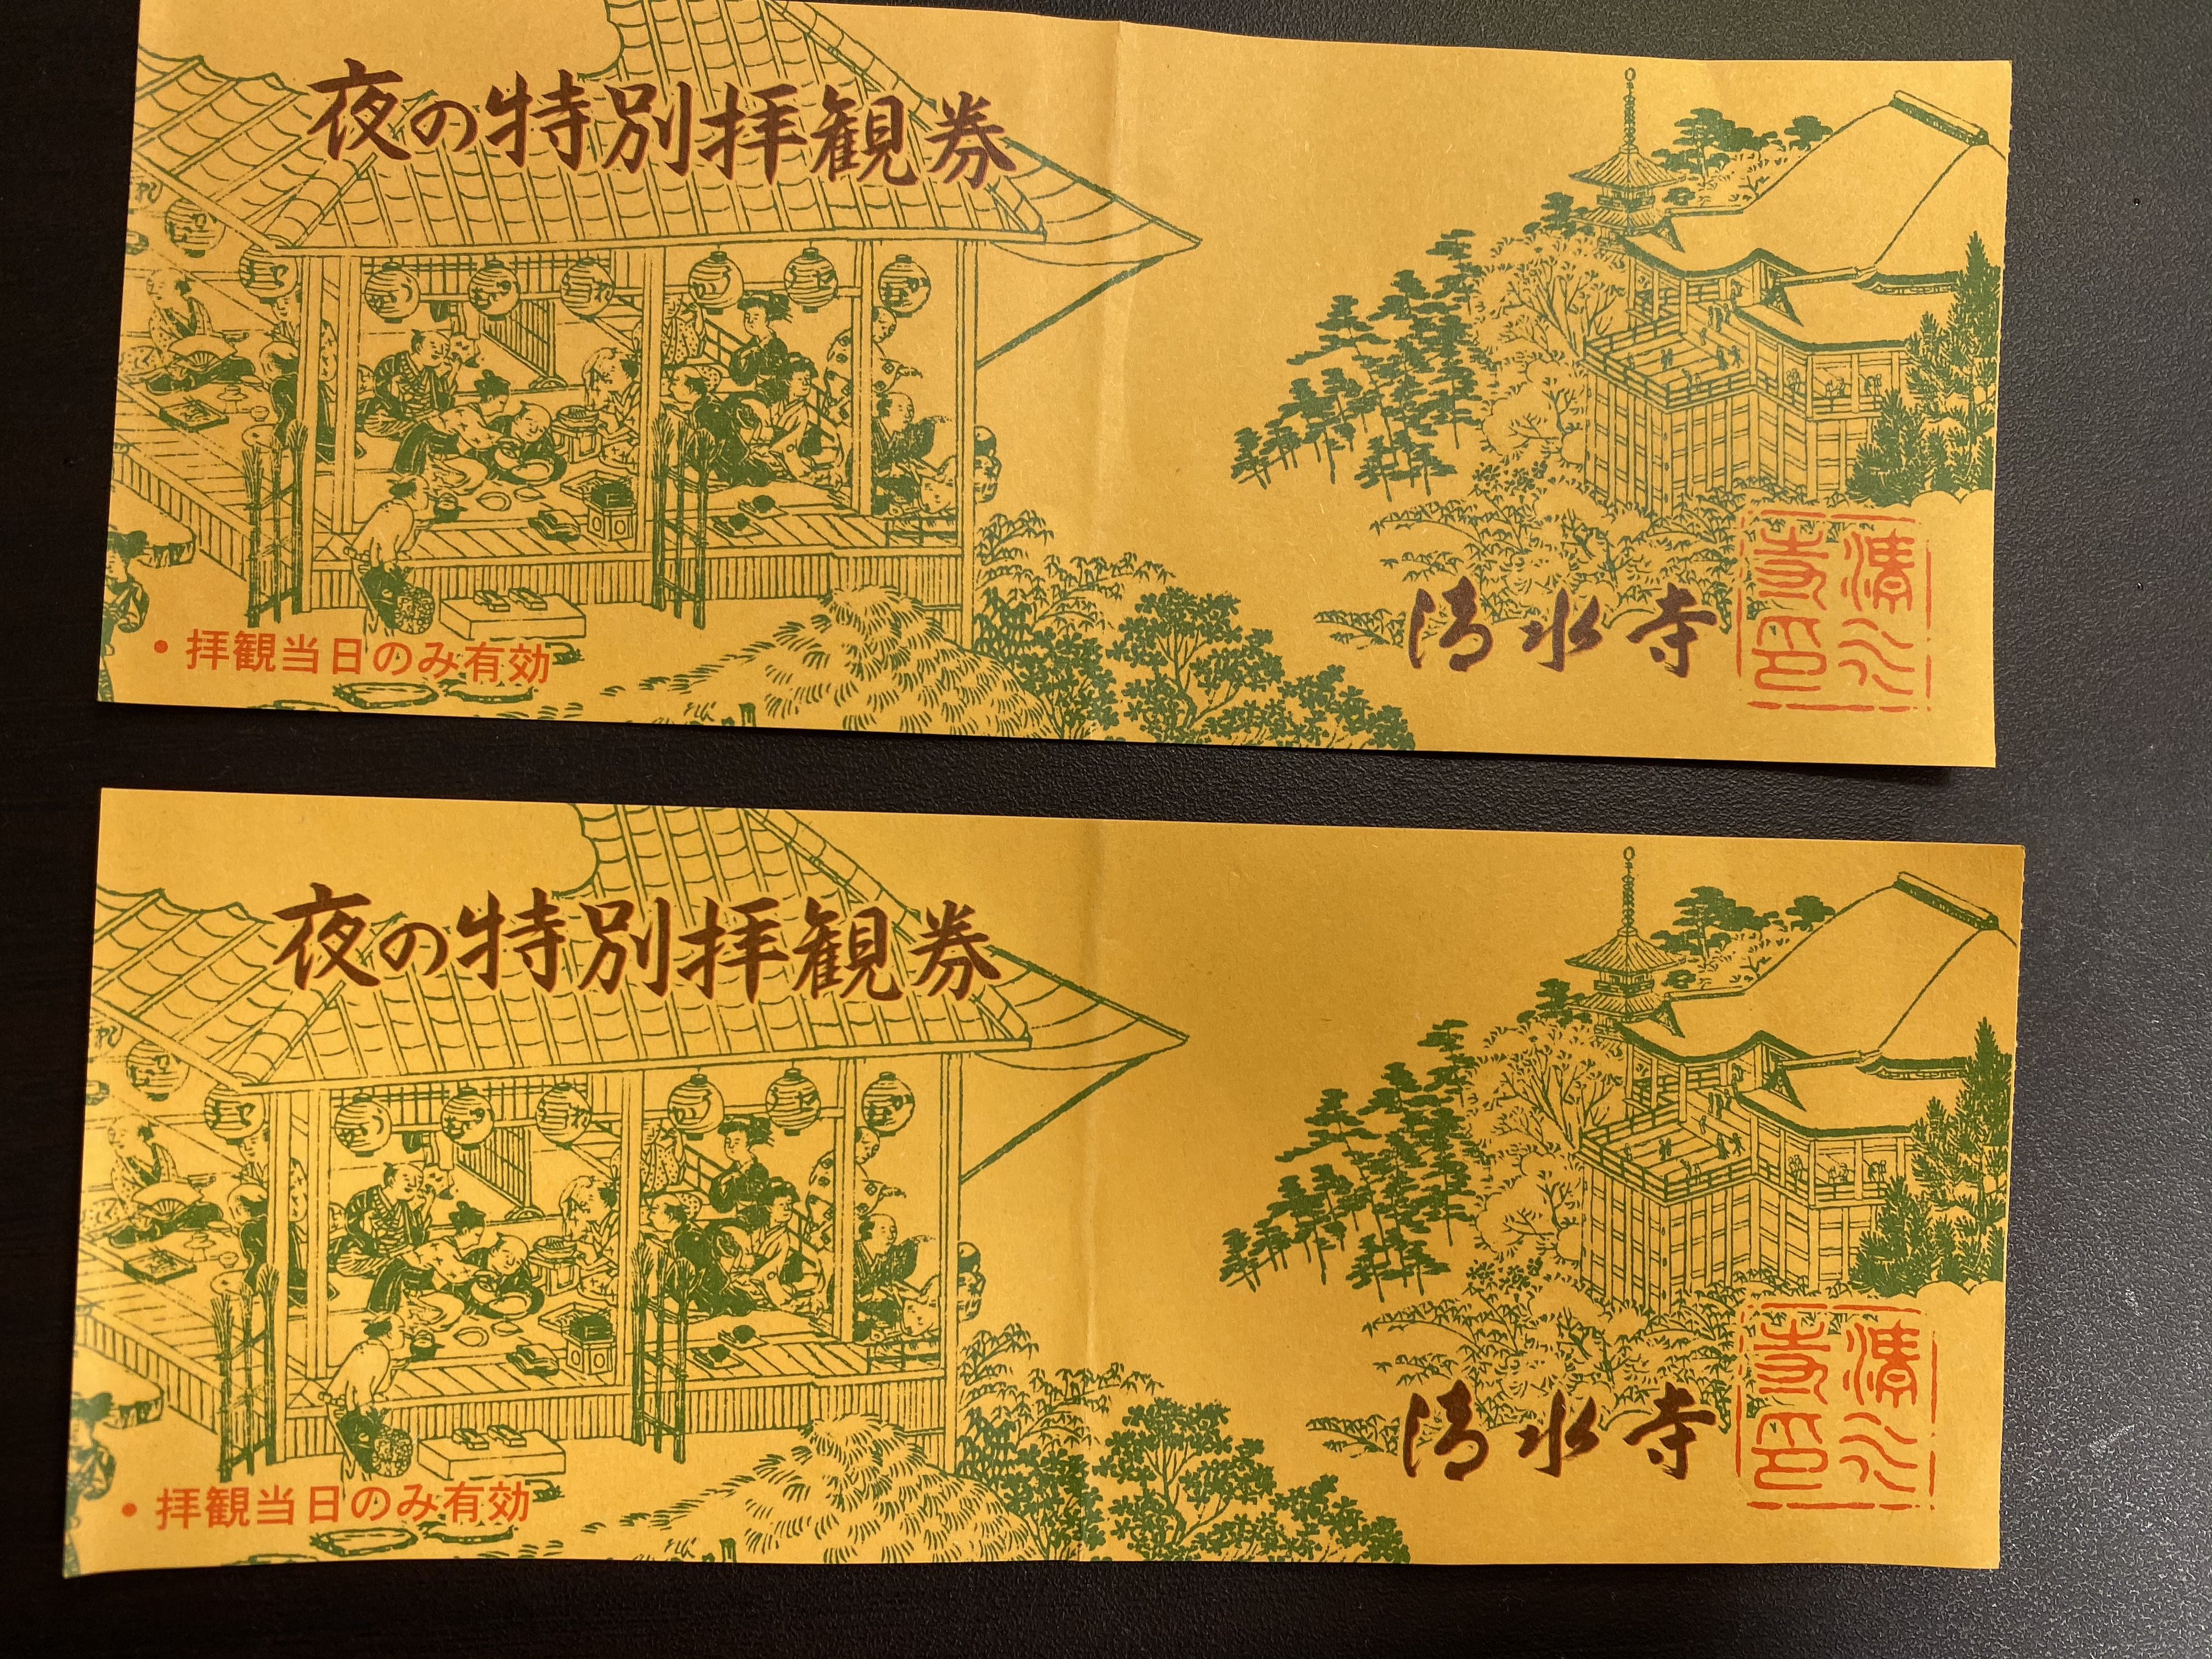 夜の特別拝観券
・拝観当日のみ有効
清水寺
清水寺印
夜の特別拝観券
・拝観当日のみ有効
清水寺
清水寺印